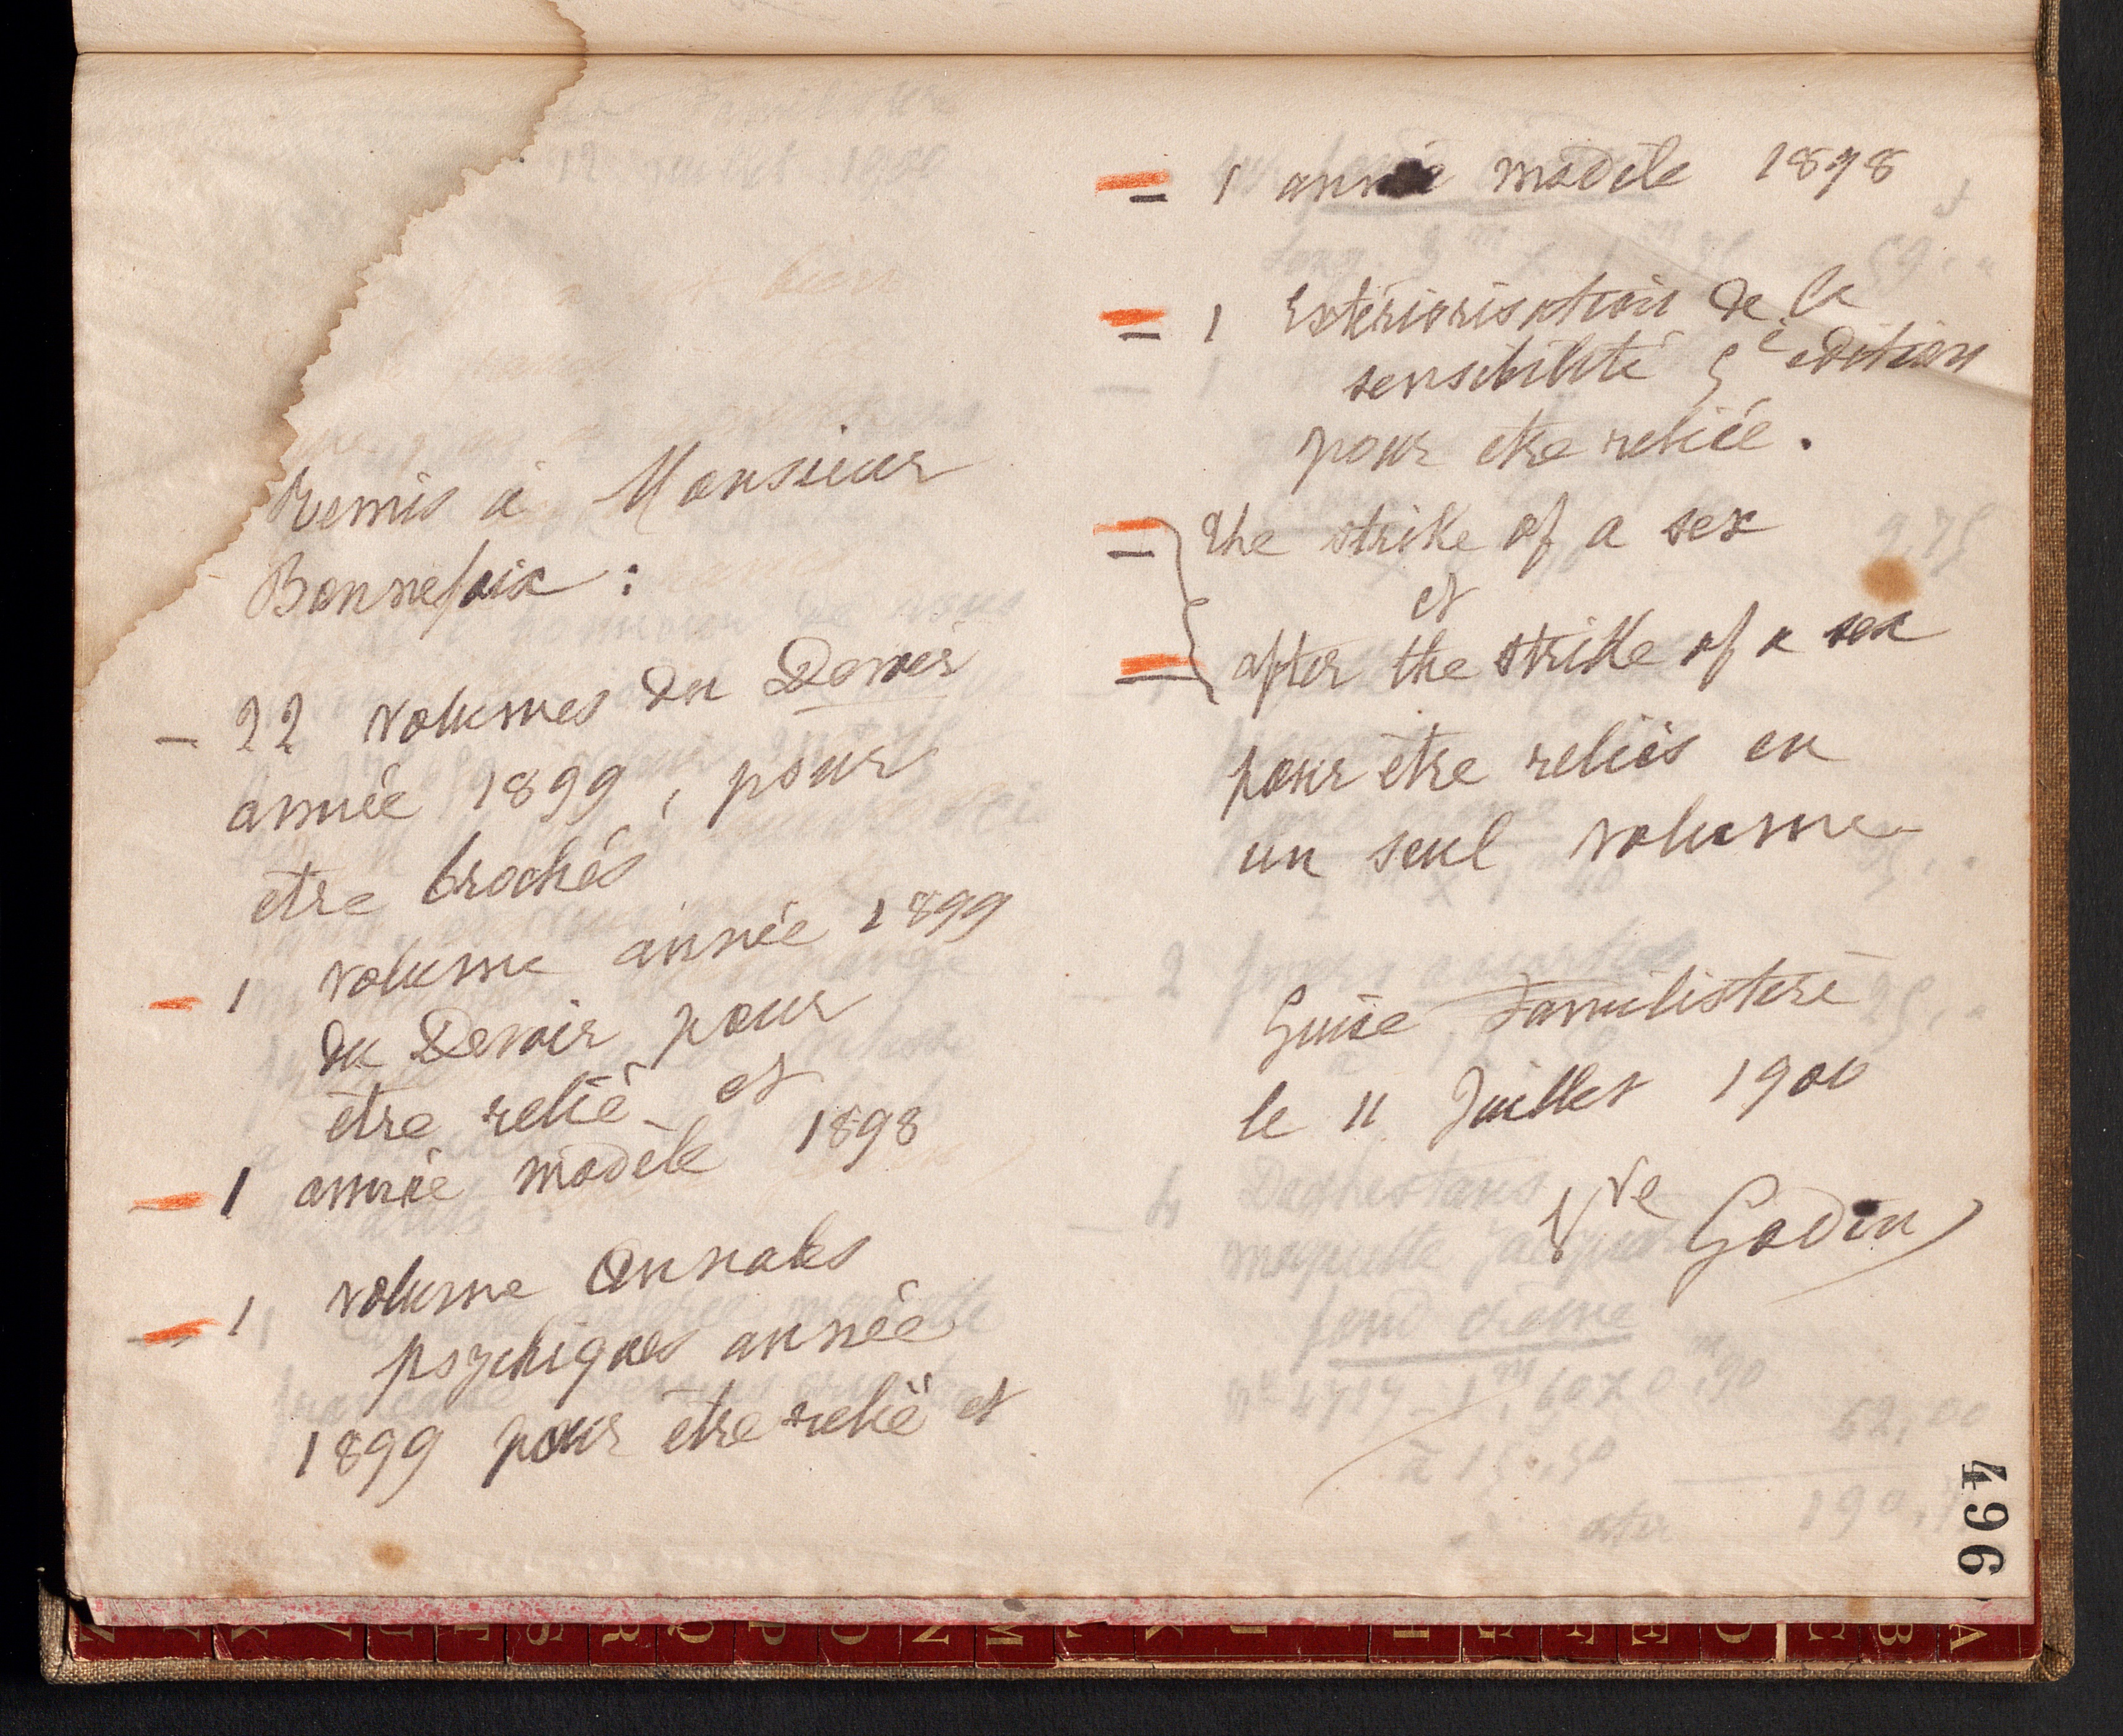 Remis à Monsieur
Bonnefoix :
— 22 volumes du Devoir
année 1899, pour
etre brochés
— 1 volume année 1899
du Devoir pour
être relié et
— 1 année modèle 1898
— 1 volume Annales
psychiques année
1899 pour être relié et
— 1 année modèle 1898
— 1 Extériorisation de la
sensibilité 5e edition
pour etre reliée.
— The strike of a sex
et
— after the strike of a sex
pour être reliés en
un seul volume
Guise Familistère
le 11 Juillet 1900
Vve Godin
496
A B C D E F G H I J K L M N O P Q R S T U V X Y Z